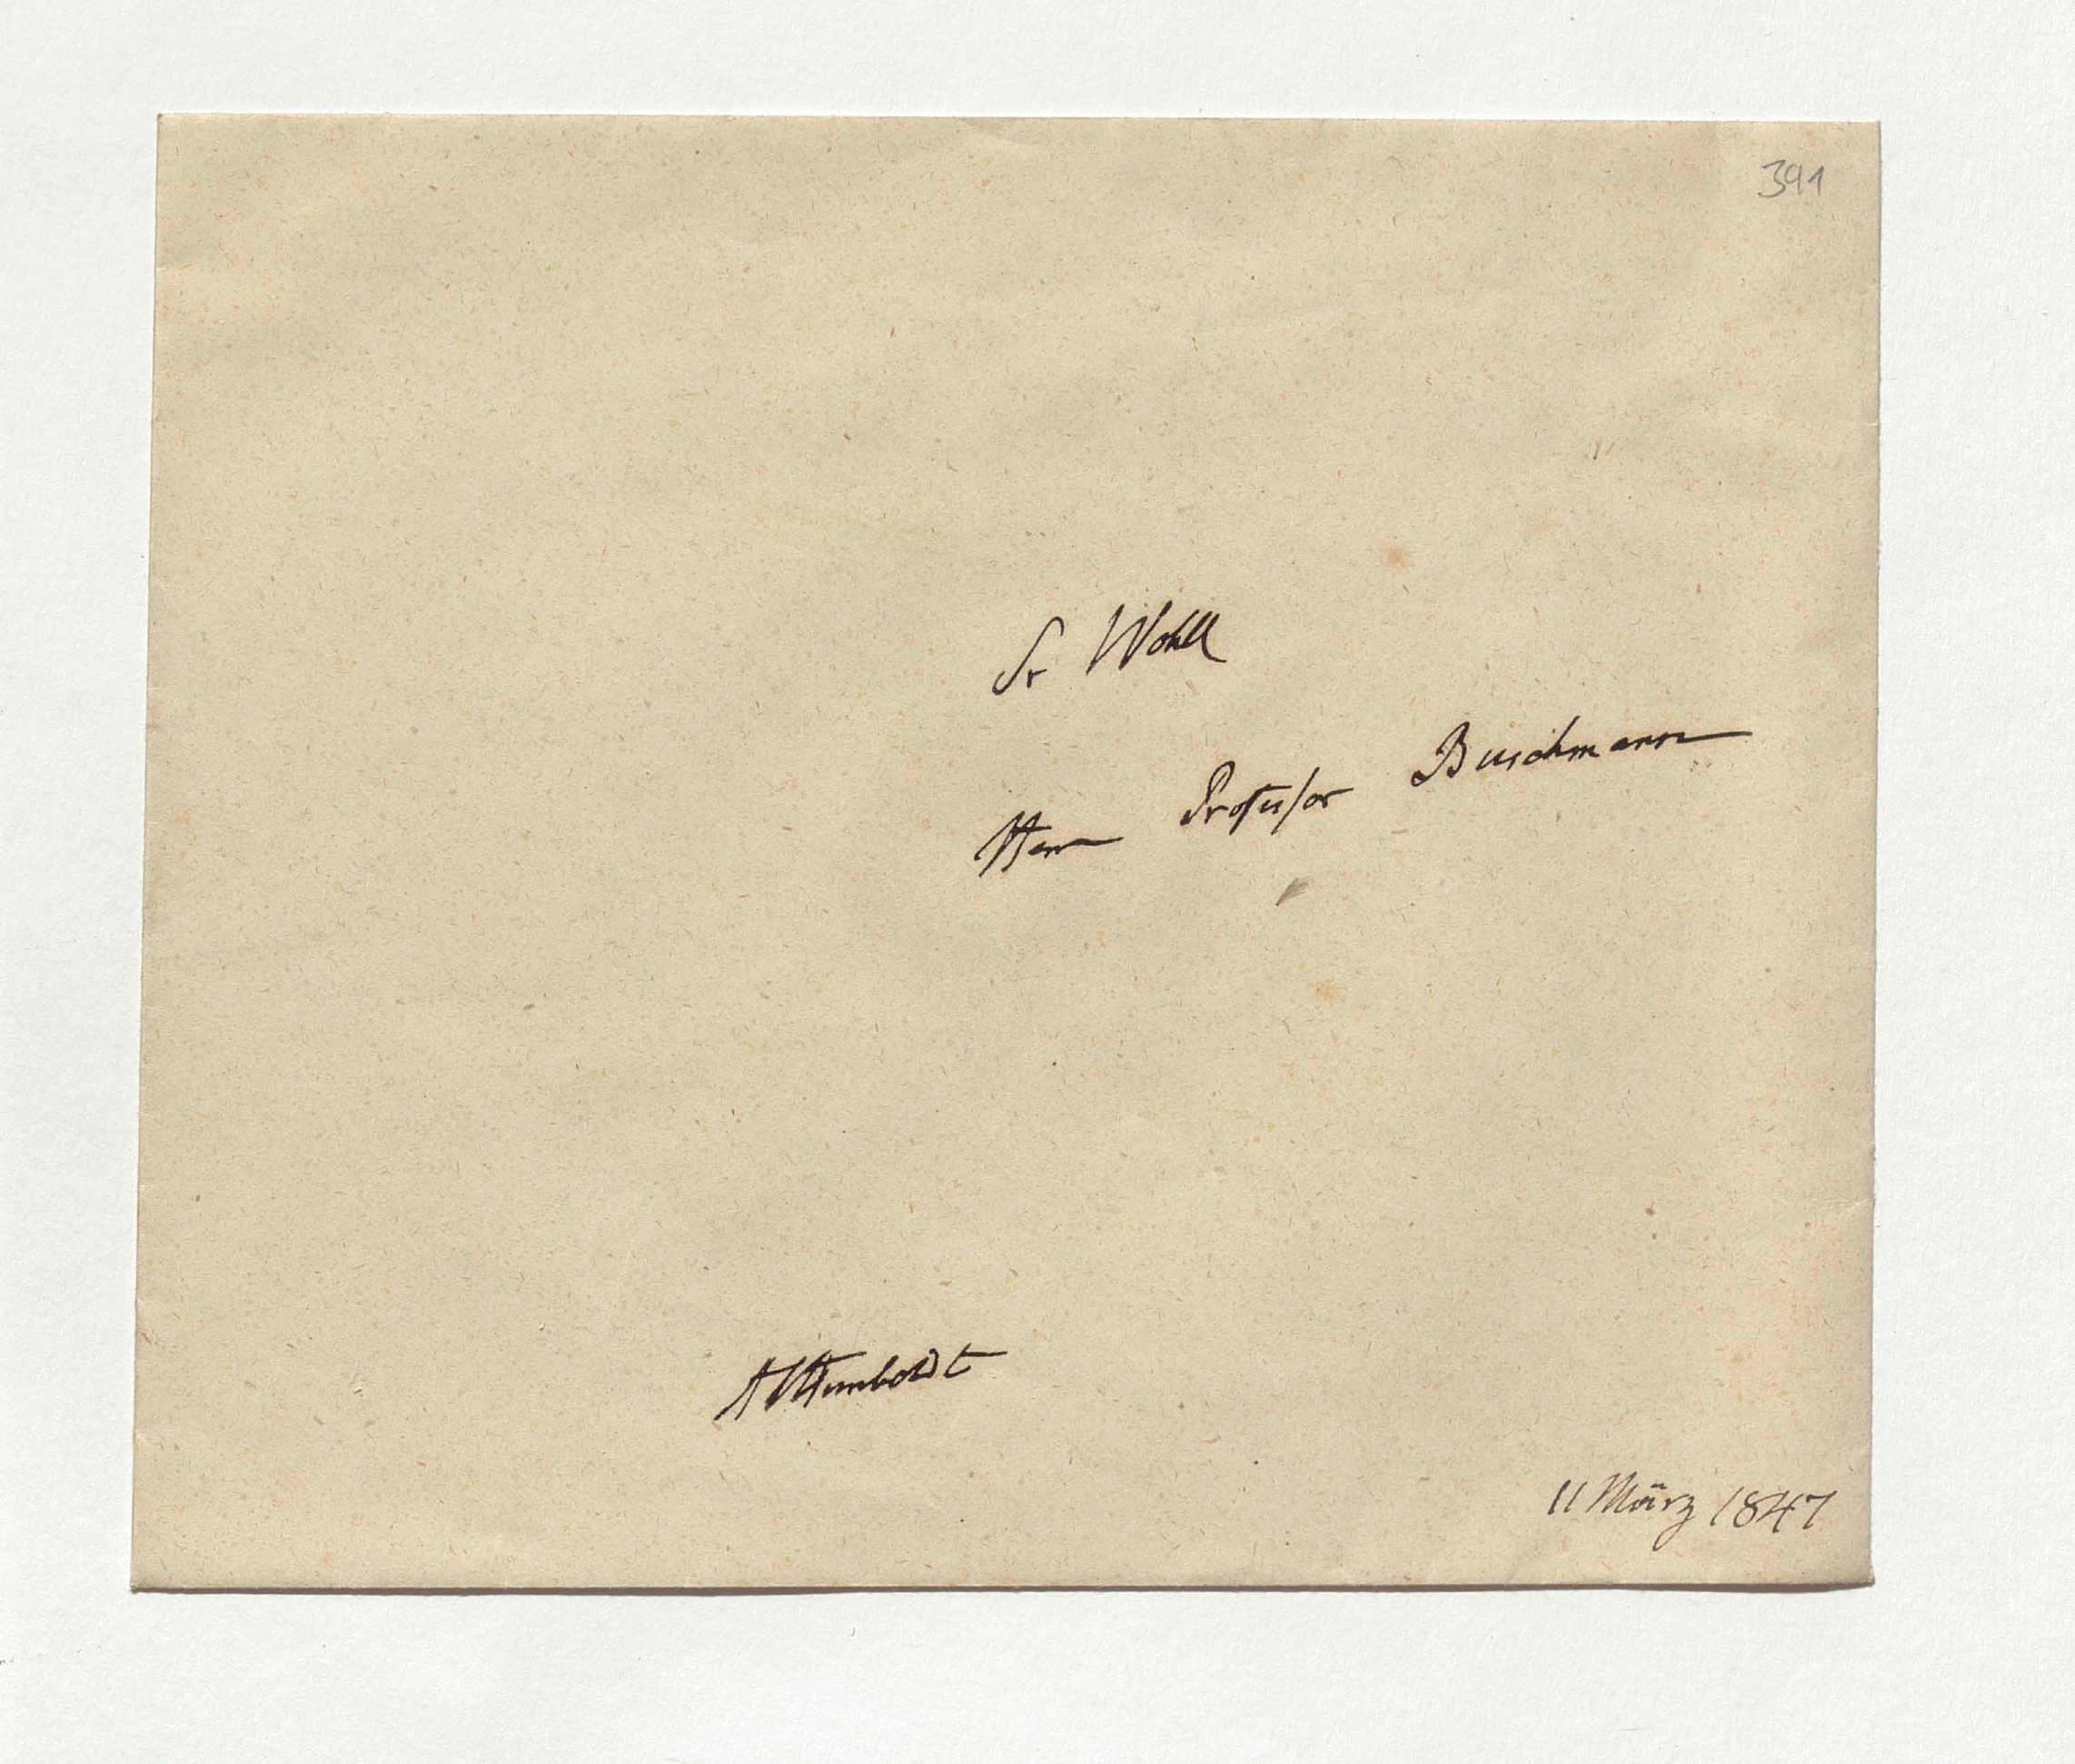 391
Sr Wohll
Herrn Professor Buschmann
AVHumboldt
11 März 1847